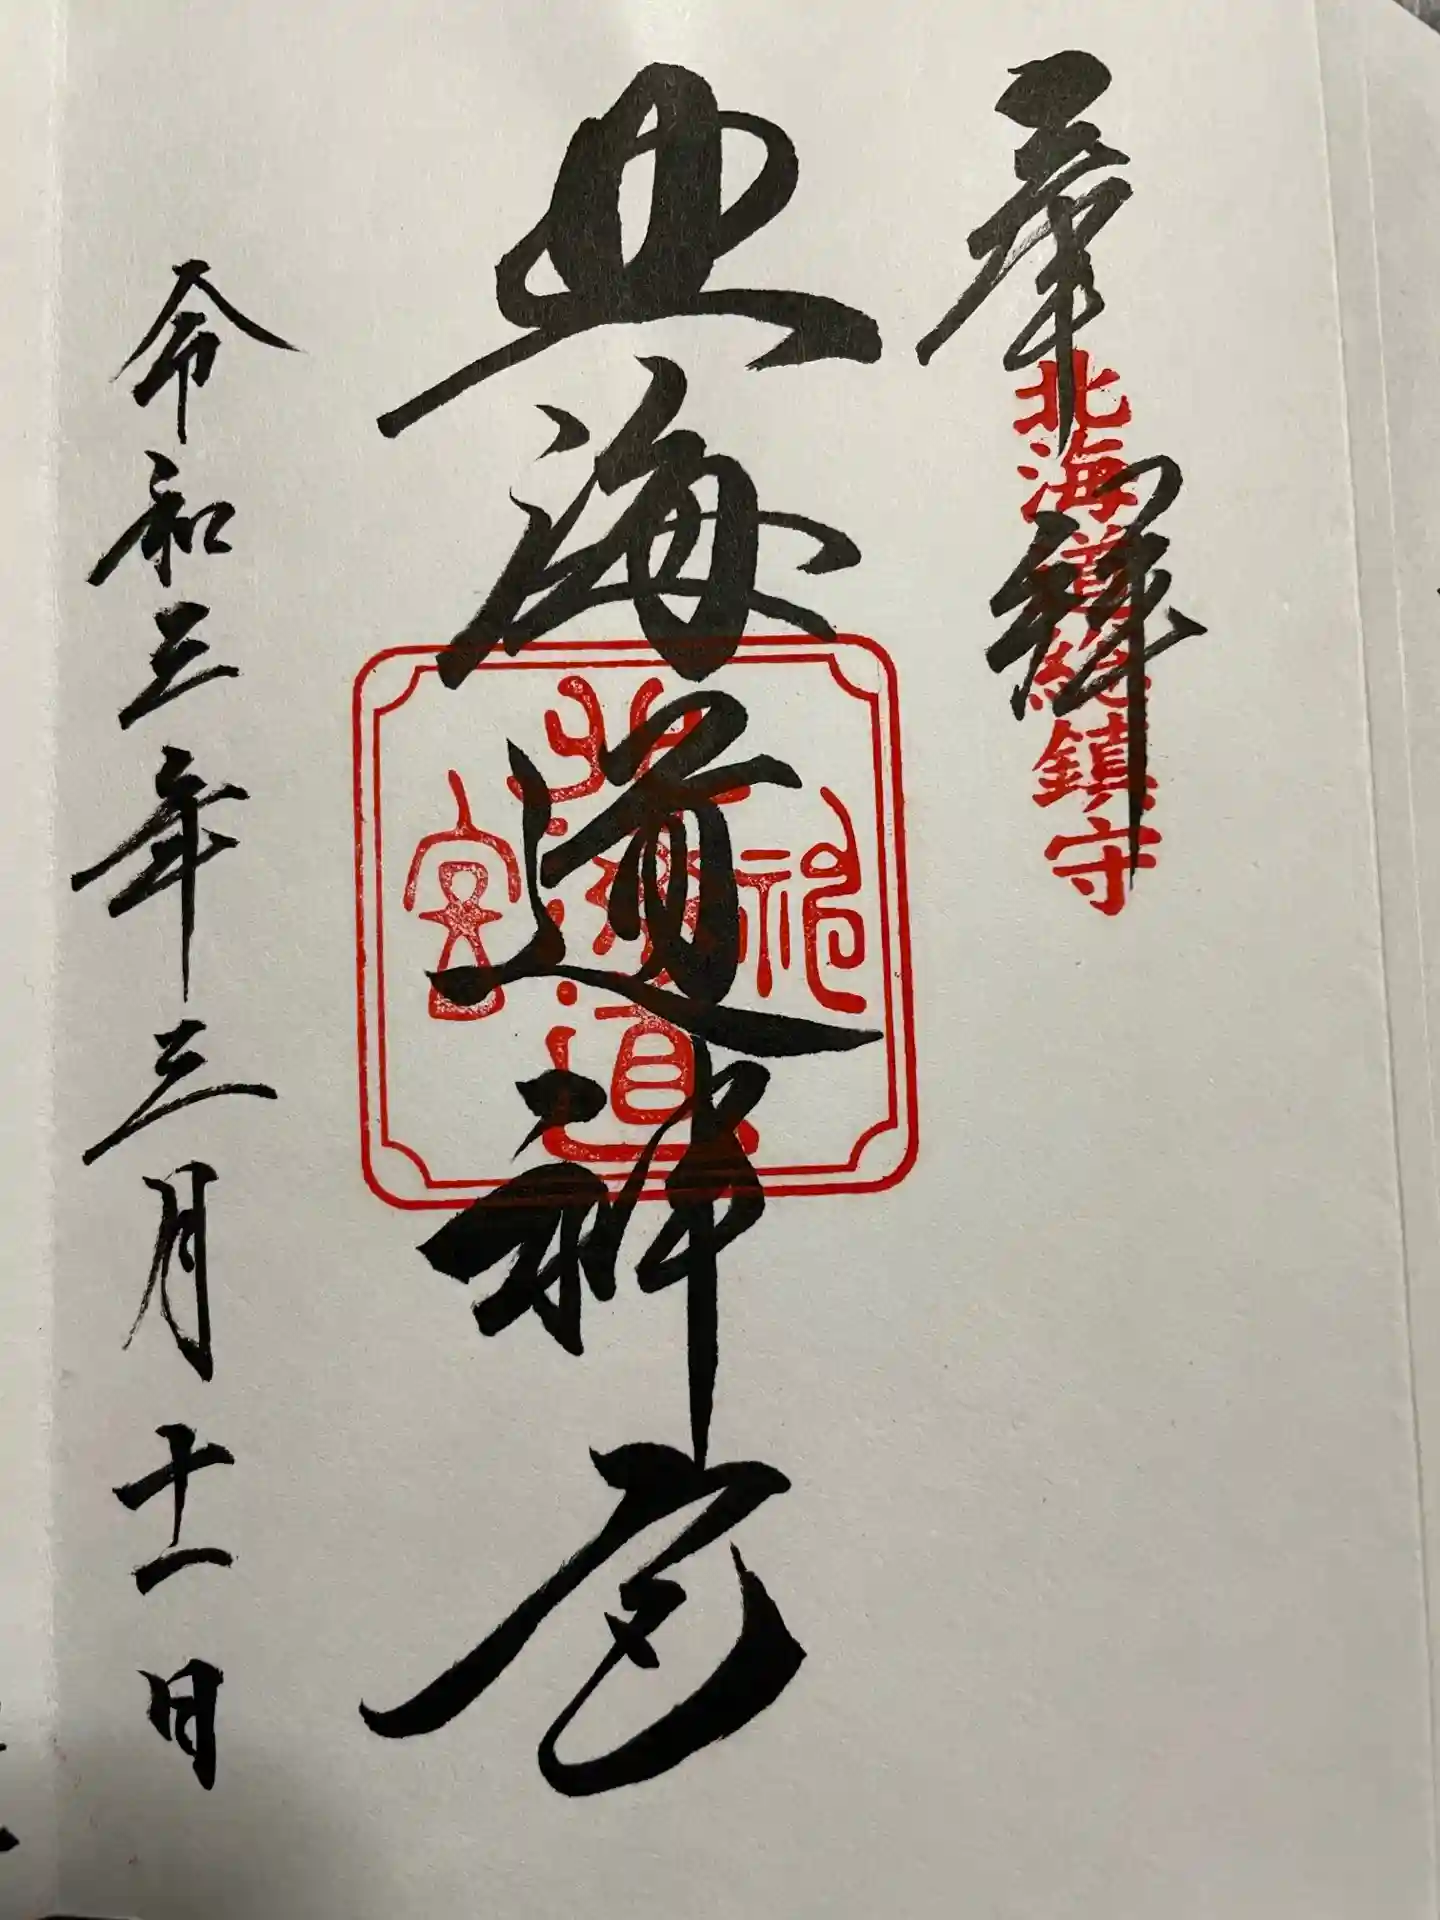 奉拝
北海道総鎮守
北海道神宮
北海道
神宮
令和三年三月十一日